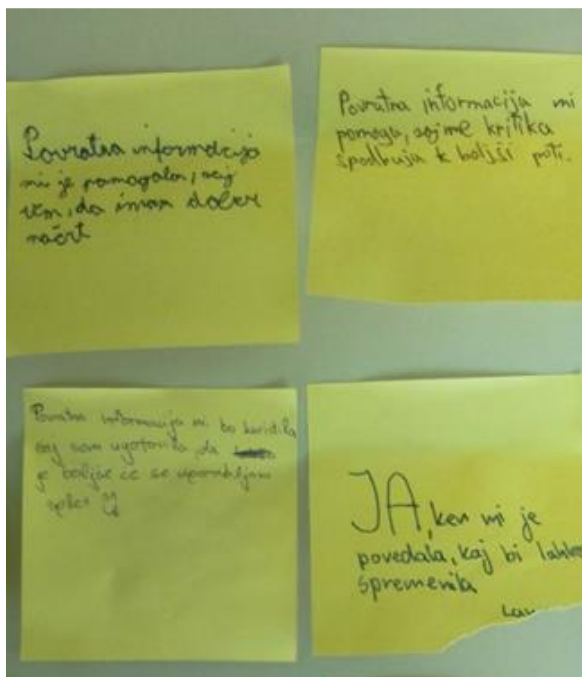 Povratna informacija
mi je pomagala, saj
vem, da imam dober
načrt
Povratna informacija mi
pomaga, saj me kritika
spodbuja k boljši poti.
Povratna informacija mi bo koristila
saj sem ugotovila da
je boljše če se uporabljam
splet
JA, ker mi je
povedala, kaj bi lahko
spremenila